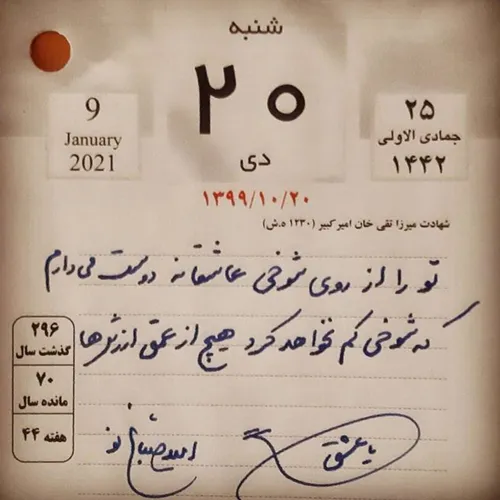 شنبه
۲۰
دی
9
January
2021
۲۵
جمادی الاولی
۱۴۴۲
۱۳۹۹/۱۰/۲۰
شهادت میرزا تقی خان امیرکبیر (۱۲۳۰ ه.ش)
تو را از روی شوخی عاشقانه دوست می‌دارم
که شوخی کم نخواهد کرد هیچ از عمق ارزش‌ها
۲۹۶
گذشت سال
۷۰
مانده سال
هفته ۴۴
یا عشق
امید صباغ نو